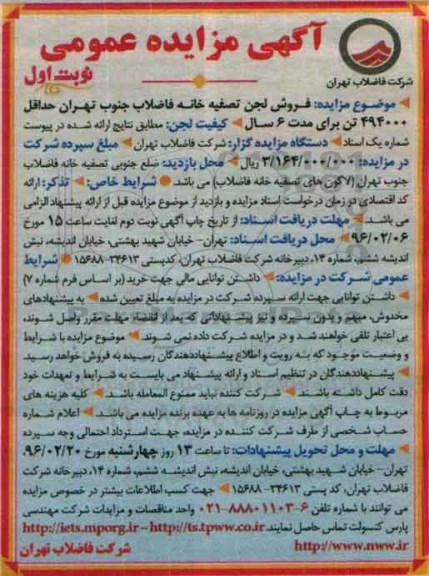 آگهی مزایده عمومی
نوبت اول
شرکت فاضلاب تهران
موضوع مزایده: فروش لجن تصفیه خانه فاضلاب جنوب تهران حداقل
۴۹۴۰۰۰ تن برای مدت ۶ سال کیفیت لجن: مطابق نتایج ارائه شده در پیوست
شماره یک اسناد دستگاه مزایده گزار: شرکت فاضلاب تهران مبلغ سپرده شرکت
در مزایده: ۳/۱۶۴/۰۰۰/۰۰۰ ریال محل بازدید: ضلع جنوبی تصفیه خانه فاضلاب
جنوب تهران (لاگون های تصفیه خانه فاضلاب) می باشد. شرایط خاص: تذکر: ارائه
کد اقتصادی در زمان درخواست اسناد مزایده و بازدید از موضوع مزایده قبل از ارائه پیشنهاد الزامی
می باشد. مهلت دریافت اسناد: از تاریخ چاپ آگهی نوبت دوم لغایت ساعت ۱۵ مورخ
۹۶/۰۲/۰۶ محل دریافت اسناد: تهران- خیابان شهید بهشتی، خیابان اندیشه، نبش
اندیشه ششم، شماره ۱۴، دبیرخانه شرکت فاضلاب تهران، کدپستی ۳۴۶۱۳-۱۵۶۸۸ شرایط
عمومی شرکت در مزایده: داشتن توانایی مالی جهت خرید (بر اساس فرم شماره ۷)
داشتن توانایی جهت ارائه سپرده شرکت در مزایده به مبلغ تعیین شده به پیشنهادهای
مخدوش، مبهم و بدون سپرده و نیز پیشنهاداتی که بعد از انقضاء مهلت مقرر واصل شوند،
بی اعتبار تلقی خواهند شد و در مزایده شرکت داده نمی شوند موضوع مزایده با شرایط
و وضعیت موجود که به رویت و اطلاع پیشنهاددهندگان رسیده به فروش خواهد رسید.
پیشنهاددهندگان در تنظیم اسناد و ارائه پیشنهاد می بایست به شرایط و تعهدات خود
دقت کامل داشته باشند شرکت کننده نباید ممنوع المعامله باشد. کلیه هزینه های
مربوط به چاپ آگهی مزایده در روزنامه ها به عهده برنده مزایده می باشد. اعلام شماره
حساب شخصی از طرف شرکت کننده در مزایده، جهت استرداد احتمالی وجه سپرده
مهلت و محل تحویل پیشنهادات: تا ساعت ۱۳ روز چهارشنبه مورخ ۹۶/۰۲/۲۰،
تهران- خیابان شهید بهشتی، خیابان اندیشه، نبش اندیشه ششم، شماره ۱۴، دبیرخانه شرکت
فاضلاب تهران، کد پستی ۳۴۶۱۳-۱۵۶۸۸ جهت کسب اطلاعات بیشتر در خصوص مزایده
می توانند با شماره تلفن ۶-۸۸۸۰۱۱۰۳-۰۲۱ واحد مناقصات و مزایدات شرکت مهندسی
پارس کنسولت تماس حاصل نمایند. http://iets.mporg.ir – http://ts.tpww.co.ir
http://www.nww.ir شرکت فاضلاب تهران